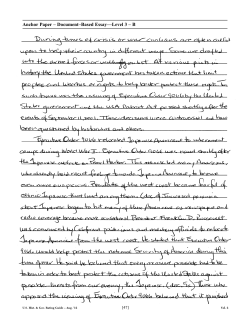 Anchor Paper – Document–Based Essay—Level 3 – B
During times of crisis or war citizens are often called
upon to help their country in different ways. Some are drafted
into the armed forces or and some are not. At various points in
history the United States government has taken actions that limit
peoples civil liberties or rights to help better protect these rights. In
such times was the issuing of Executive Order 9066 by the United
States government and the USA Patriot Act passed shortly after the
events of September 11, 2001. These decisions were controversial and have
been questioned by historians and others.
Executive Order 9066 relocated Japanese Americans to internment
camps during World War I. Executive Order 9066 was issued shortly after
the Japanese attack on Pearl Harbor. This attack led many Americans
who already had racist feelings towards Japanese Americans, to become
even more suspicious. Residents of the west coast became fearful of
ethnic Japanese that lived among them (doc 1). Tension and paranoia
about Japanese began to hit many of these Americans as newspapers and
radio coverage became more available. President Franklin D. Roosevelt
was convinced by
Japanese Americans from the west coast. He stated that Executive Order
9066 would help protect the national security of America during this
time of war. He said he believed that every measure possible had to be
taken in order to best protect the citizens of the United States against
possible threats from our enemy, the Japanese (doc 2a). Those who
opposed the issuing of Executive Order 9066 believed that it
U.S. Hist. & Gov. Rating Guide – Aug. '18
[47]
Vol. 1